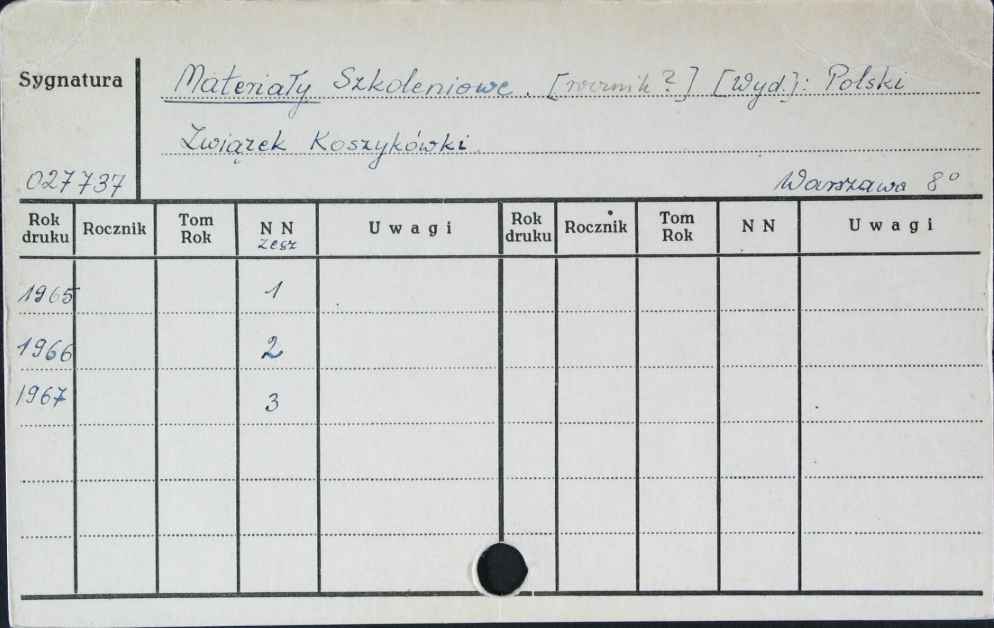 Sygnatura
Materiały Szkoleniowe. [rocznik?] [Wyd.]: Polski
Związek Koszykówki.
027737
Warszawa 8°
Rok druku Rocznik Tom Rok NN zesz Uwagi Rok druku Rocznik Tom Rok NN Uwagi
1965 1
1966 2
1967 3